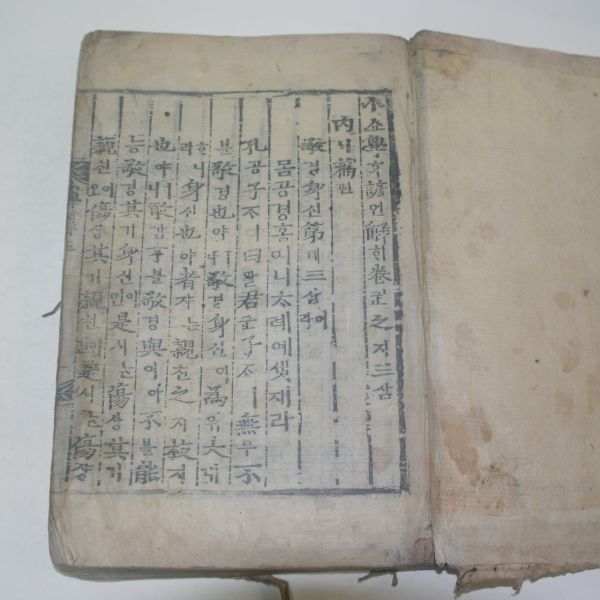 小쇼學ᄒᆞᆨ諺언解ᄒᆡ卷권之지三삼
內ᄂᆡ篇편
敬경身신第뎨三삼이라
몸공경홈이니ᄎᆞ례예셋재라
孔공子ᄌᆞㅣ曰왈君군子ᄌᆞㅣ無무不
블敬경也야ㅣ나敬경身신이爲위大대
ᄒᆞ니身신也야者쟈ᄂᆞᆫ親친之지枝지
也야ㅣ니敢감不블敬경與여아不블能
능敬경其기身신이면是시ᄂᆞᆫ傷샹其기
親친이오傷샹其기親친이면是시ᄂᆞᆫ傷샹